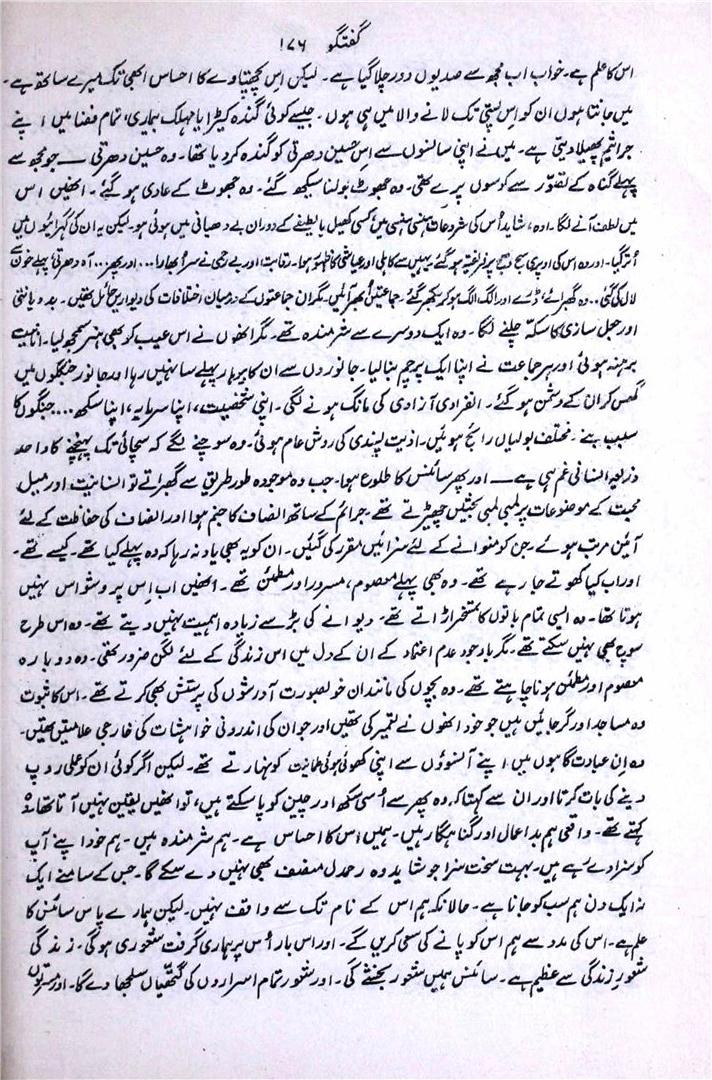 گفتگو ۱۷۶
اس کا علم ہے۔ خواب اب مجھ سے صدیوں دور چلا گیا ہے۔ لیکن اس پچھتاوے کا احساس ابھی تک میرے ساتھ ہے۔
میں جانتا ہوں ان کو اس پستی تک لانے والا میں ہی ہوں۔ جیسے کوئی گندہ کیڑا یا مہلک بیماری، تمام فضا میں اپنے
جراثیم پھیلا دیتی ہے۔ میں نے اپنی سانسوں سے اس حسین دھرتی کو گندہ کر دیا تھا۔ وہ حسین دھرتی — جو مجھ سے
پہلے گناہ کے تصوّر سے کوسوں پرے تھی۔ وہ جھوٹ بولنا سیکھ گئے۔ وہ جھوٹ کے عادی ہو گئے۔ انھیں اس
میں لطف آنے لگا۔ اوہ، شاید اُس کی شروعات ہنسی ہنسی میں، کسی کھیل یا لطیفے کے دوران بے دھیانی میں ہوئی ہو۔ لیکن یہ ان کی گہرائیوں میں
اُتر گیا۔ اور وہ اس کی اوپری سج دھج پر فریفتہ ہو گئے۔ یہیں سے کاہلی اور عیاشی کا ظہور ہوا۔ رقابت اور بے رحمی نے سر اُبھارا... اور پھر... آہ دھرتی پہلے خون سے
لال کی گئی.. وہ گھبرائے، ڈرے اور الگ الگ ہو کر بکھر گئے۔ جماعتیں اُبھر آئیں۔ مگر ان جماعتوں کے درمیان اختلافات کی دیواریں حائل تھیں۔ بددیانتی
اور جعل سازی کا سکّہ چلنے لگا۔ وہ ایک دوسرے سے شرمندہ تھے۔ مگر انھوں نے اس عیب کو بھی ہنر سمجھ لیا۔ انانیت
برہنہ ہوئی اور ہر جماعت نے اپنا ایک پرچم بنا لیا۔ جانوروں سے ان کا برتاؤ پہلے سا نہیں رہا اور جانور جنگلوں میں
گھس کر ان کے دشمن ہو گئے۔ انفرادی آزادی کی مانگ ہونے لگی۔ اپنی شخصیت، اپنا سرمایہ، اپنا سکھ... جنگوں کا
سبب بنے۔ مختلف بولیاں رائج ہوئیں۔ اذیت پسندی کی روش عام ہوئی۔ وہ سوچنے لگے کہ سچائی تک پہنچنے کا واحد
ذریعہ انسانی غم ہی ہے — اور پھر سائنس کا طلوع ہوا۔ جب وہ موجودہ طور طریق سے گھبراتے تو انسانیت اور میل
محبت کے موضوعات پر لمبی لمبی بحثیں چھیڑتے تھے۔ جرائم کے ساتھ انصاف کا جنم ہوا اور انصاف کی حفاظت کے لئے
آئین مرتب ہوئے۔ جن کو منوانے کے لئے سزائیں مقرر کی گئیں۔ ان کو یہ بھی یاد نہ رہا کہ وہ پہلے کیا تھے۔ کیسے تھے۔
اور اب کیا کھوتے جا رہے تھے۔ وہ بھی پہلے معصوم، مسرور اور مطمئن تھے۔ انھیں اب اس پر وشواس نہیں
ہوتا تھا۔ وہ ایسی تمام باتوں کا تمسخر اڑاتے تھے۔ دیوانے کی بڑ سے زیادہ اہمیت نہیں دیتے تھے۔ وہ اس طرح
سوچ بھی نہیں سکتے تھے۔ مگر باوجود عدم اعتماد کے ان کے دل میں اس زندگی کے لئے لگن ضرور تھی۔ وہ دوبارہ
معصوم اور مطمئن ہونا چاہتے تھے۔ وہ بچوں کی مانند ان خوبصورت آدرشوں کی پرستش بھی کرتے تھے۔ اس کا ثبوت
وہ مساجد اور گرجائیں ہیں جو خود انھوں نے تعمیر کی تھیں اور جو ان کی اندرونی خواہشات کی خارجی علامتیں تھیں۔
وہ ان عبادت گاہوں میں اپنے آنسوؤں سے اپنی کھوئی ہوئی طمانیت کو نہارتے تھے۔ لیکن اگر کوئی ان کو عملی روپ
دینے کی بات کرتا اور ان سے کہتا کہ وہ پھر سے اُسی سکھ اور چین کو پا سکتے ہیں، تو انھیں یقین نہیں آتا تھا۔ وہ
کہتے تھے۔ واقعی ہم بداعمال اور گناہگار ہیں۔ ہمیں اس کا احساس ہے۔ ہم شرمندہ ہیں۔ ہم خود اپنے آپ
کو سزا دے رہے ہیں۔ بہت سخت سزا جو شاید وہ رحمدل منصف بھی نہیں دے سکے گا۔ جس کے سامنے ایک
نہ ایک دن ہم سب کو جانا ہے۔ حالانکہ ہم اس کے نام تک سے واقف نہیں۔ لیکن ہمارے پاس سائنس کا
علم ہے۔ اس کی مدد سے ہم اس کو پانے کی سعی کریں گے۔ اور اس بار اُس پر ہماری گرفت شعوری ہو گی۔ زندگی
شعورِ زندگی سے عظیم ہے۔ سائنس ہمیں شعور بخشے گی۔ اور شعور تمام اسراروں کی گتھیاں سلجھا دے گا۔ اور مسرتوں